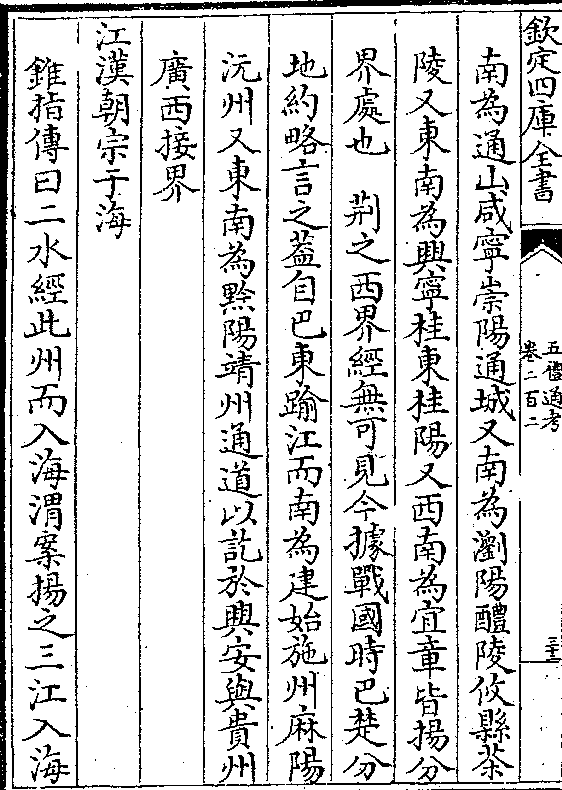 欽定四庫全書
五禮通考
卷二百二
三十二
南為通山咸寧崇陽通城又南為瀏陽醴陵攸縣茶
陵又東南為興寧桂東桂陽又西南為宜章皆揚分
界處也　荆之西界經無可見今據戰國時巴楚分
地約略言之葢自巴東踰江而南為建始施州麻陽
沅州又東南為黔陽靖州通道以訖於興安與貴州
廣西接界
江漢朝宗于海
錐指傳曰二水經此州而入海渭案揚之三江入海